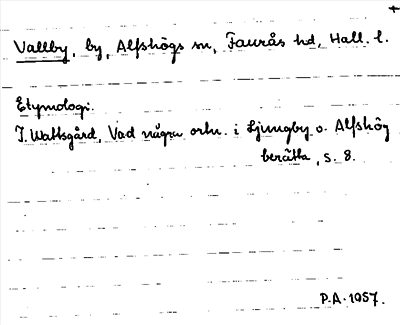 Vallby, by, Alfshögs sn, Faurås hd, Hall. l.
Etymologi.
J. Wattsgård, Vad några ortn. i Ljungby o. Alfshög
berätta, s. 8.
P.A. 1957.